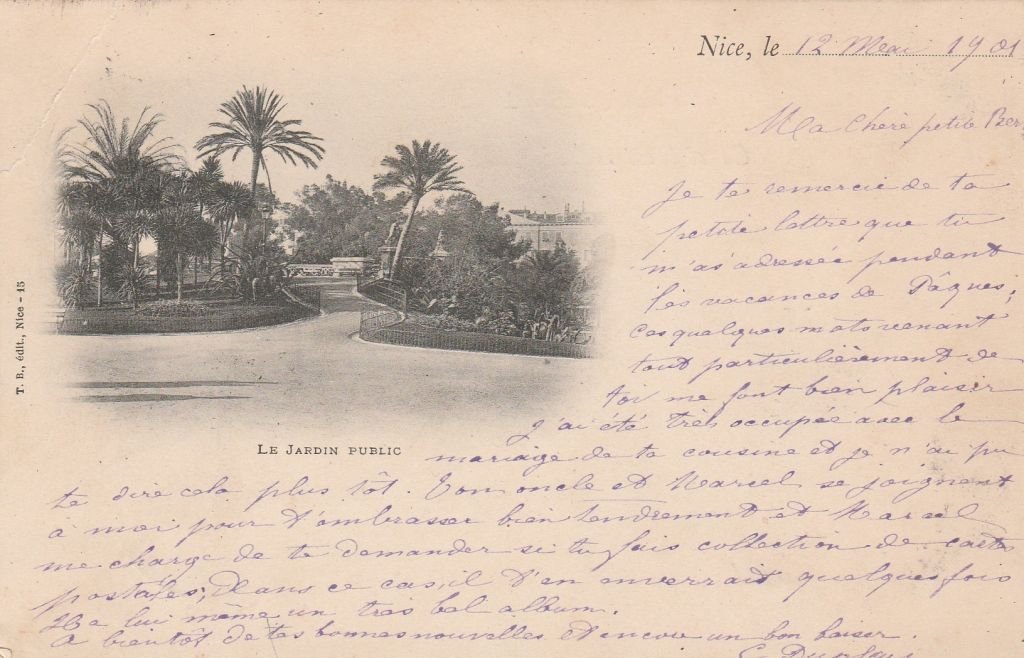 Nice, le 12 Mai 1901
Ma chère petite Ber
Je te remercie de ta
petite lettre que tu
m'as adressée pendant
les vacances de Pâques;
ces quelques mots venant
tout particulièrement de
toi me font bien plaisir
J'ai été très occupée avec le
LE JARDIN PUBLIC
mariage de ta cousine et je n'ai pu
te dire cela plus tôt. Ton oncle et Marcel se joignent
à moi pour t'embrasser bien tendrement et Marcel
me charge de te demander si tu fais collection de cartes
postales; Dans ce cas, il t'en enverrait quelques fois
Il a lui même un très bel album.
A bientôt de tes bonnes nouvelles et encore un bon baiser.
T. B., édit., Nice - 15